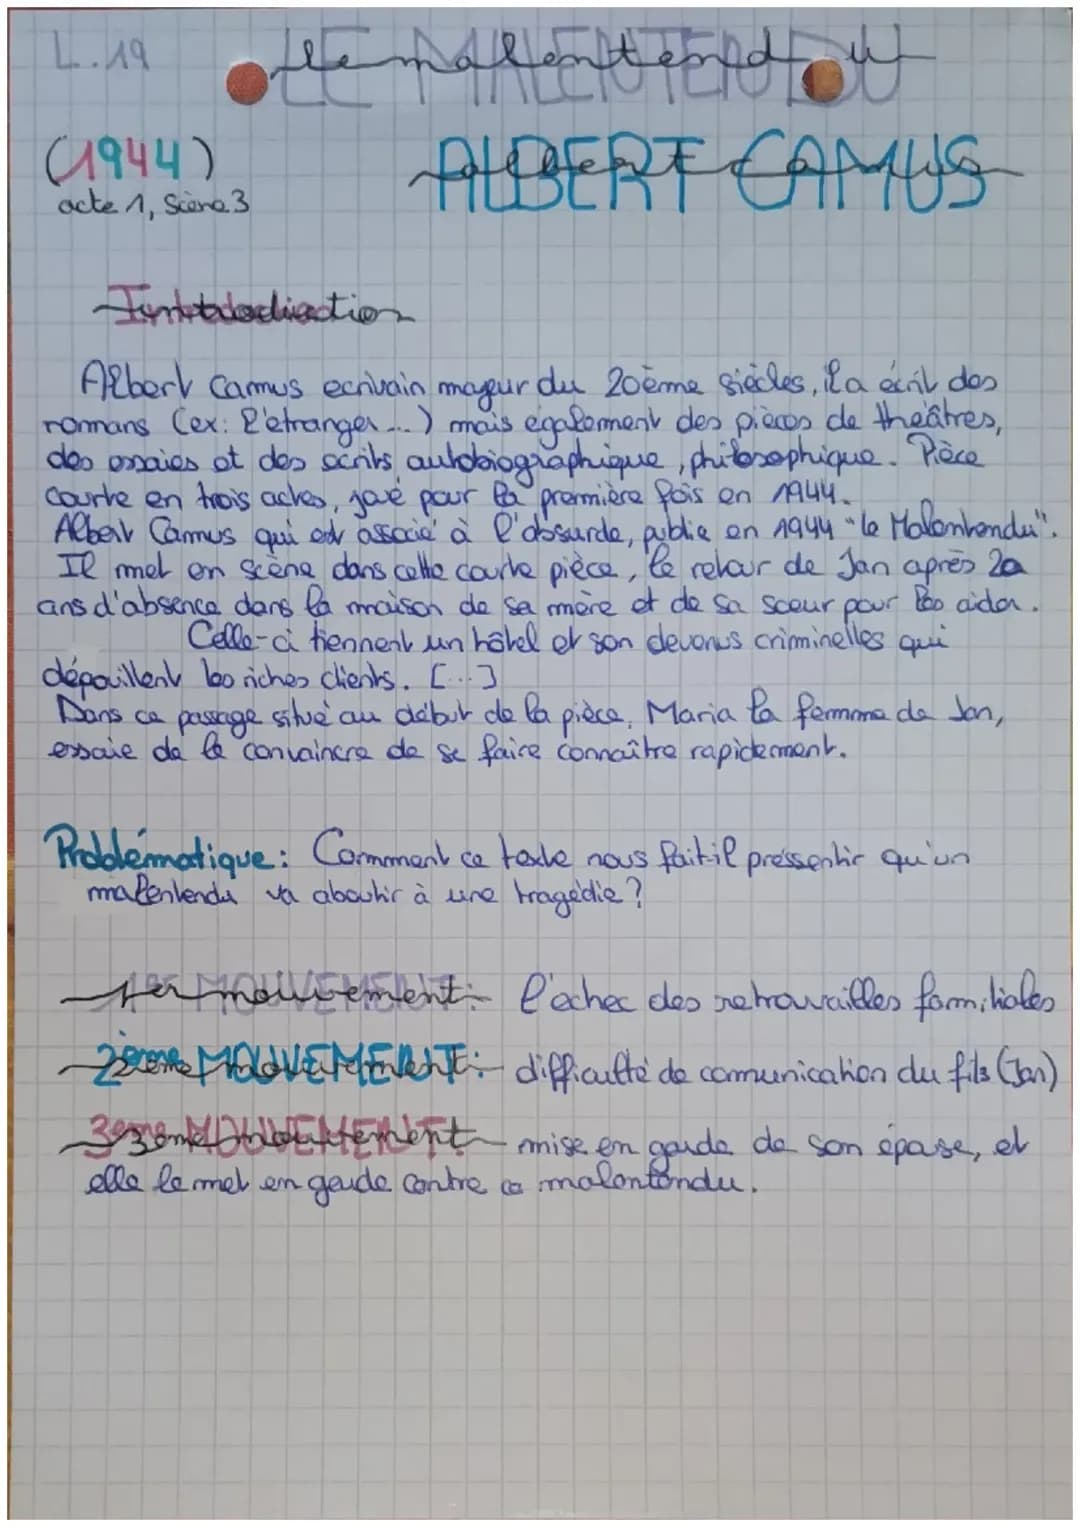 L.19
LE MALENTENDU
le malentendu
(1944)
ALBERT CAMUS
albert camus
acte 1, Scène 3
Introduction
Albert Camus ecrivain majeur du 20ème siècles, il a écrit des
romans (ex: l'etranger...) mais également des pièces de theâtres,
des essaies et des ecrits autobiographique, philosophique. Pièce
courte en trois actes, joué pour la première fois en 1944.
Albert Camus qui est associé à l'absurde, publie en 1944 "le Malentendu".
Il met en scène dans cette courte pièce, le retour de Jan après 20
ans d'absence dans la maison de sa mère et de sa soeur pour les aider.
Celle-ci tiennent un hôtel et son devenus criminelles qui
dépouillent les riches clients. [...]
Dans ce passage situé au début de la pièce, Maria la femme de Jan,
essaie de le convaincre de se faire connaître rapidement.
Problématique: Comment ce texte nous fait-il pressentir qu'un
malentendu va aboutir à une tragédie?
1er MOUVEMENT: l'échec des retrouvailles familiales
1er mouvement:
2ème MOUVEMENT: difficulté de communication du fils (Jan)
2ème mouvement:
3ème MOUVEMENT mise en garde de son épouse, et
3ème mouvement
elle le met en garde contre ce malentendu.